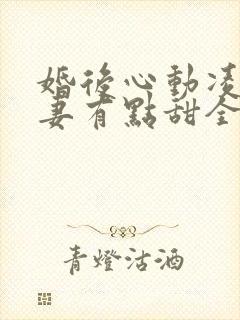 婚後心動凌
妻有點甜全
青燈沽酒